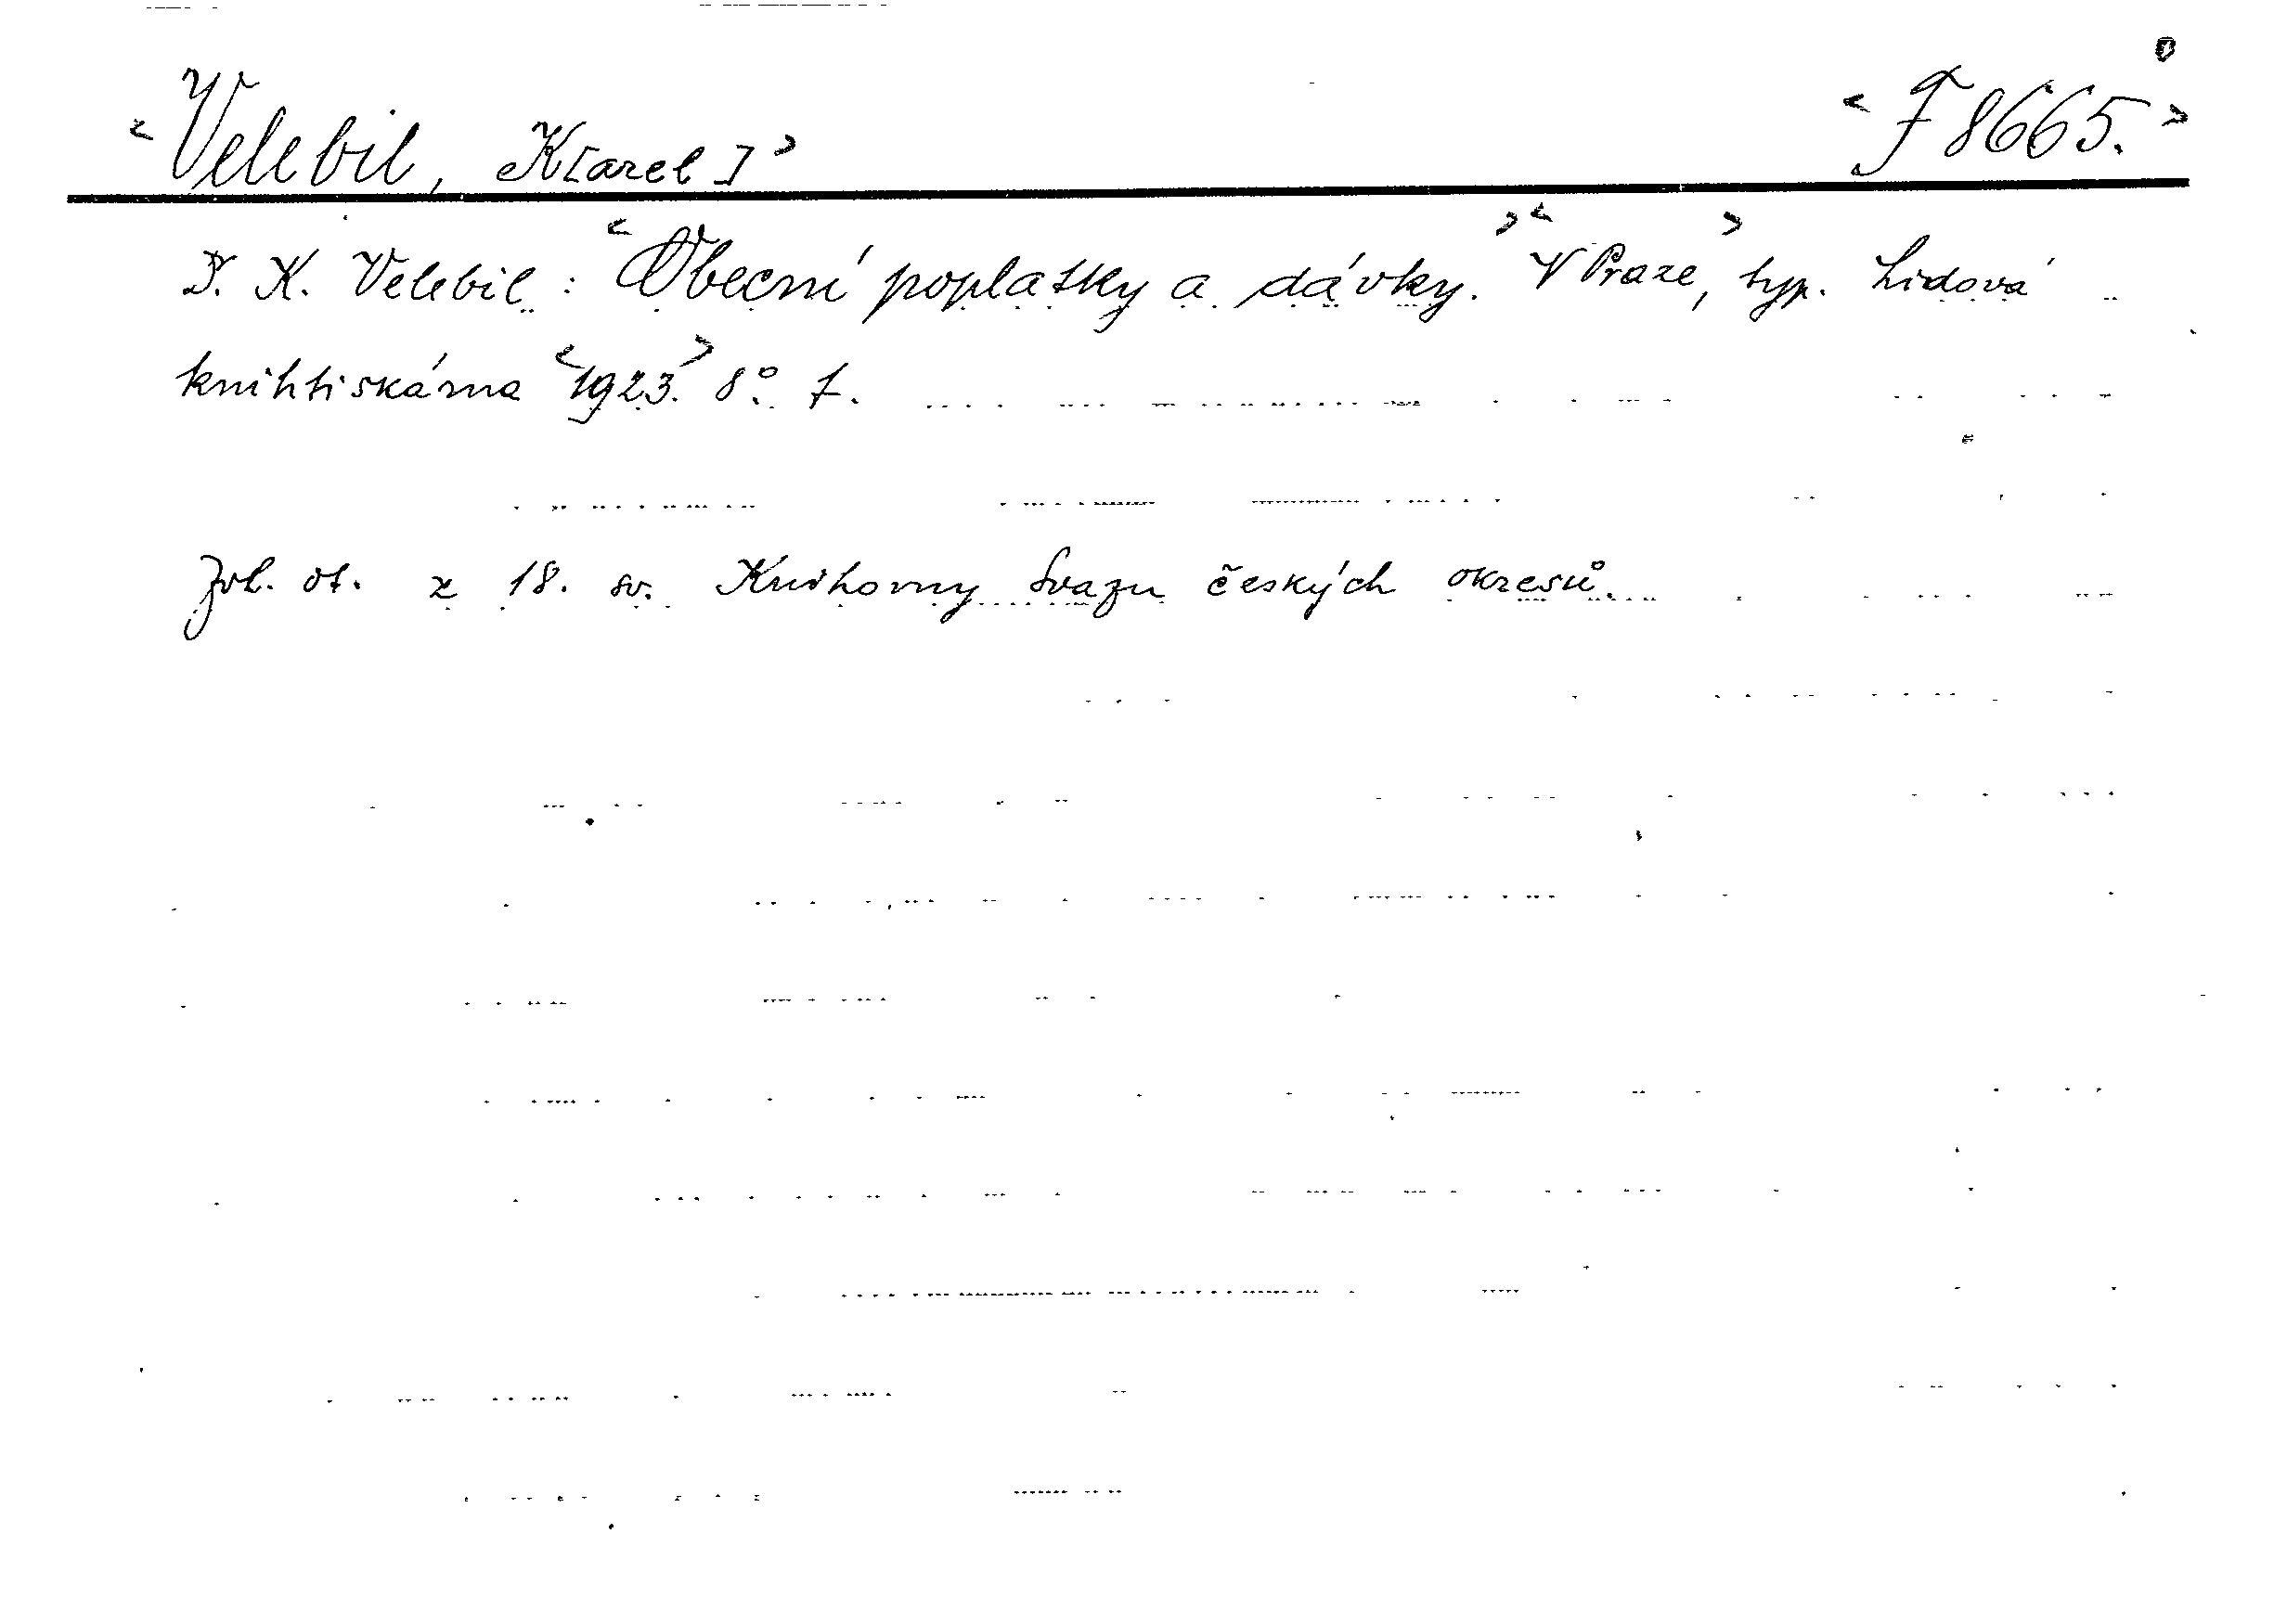 <Velebil, K[arel]> <F 8665.>
D. K. Velebil: <Obecní poplatky a dávky.> <V Praze,> typ. Lidová
knihtiskárna <1923.> 8°.
Zvl. ot. z 18. sv. Knihovny Svazu českých okresů.